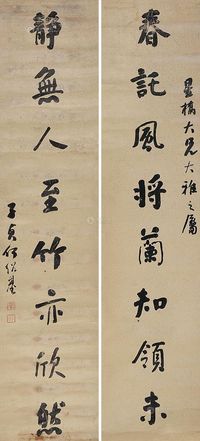 星橋大兄大雅之屬
春託風將蘭知領未
靜無人至竹亦欣然
子貞何紹基